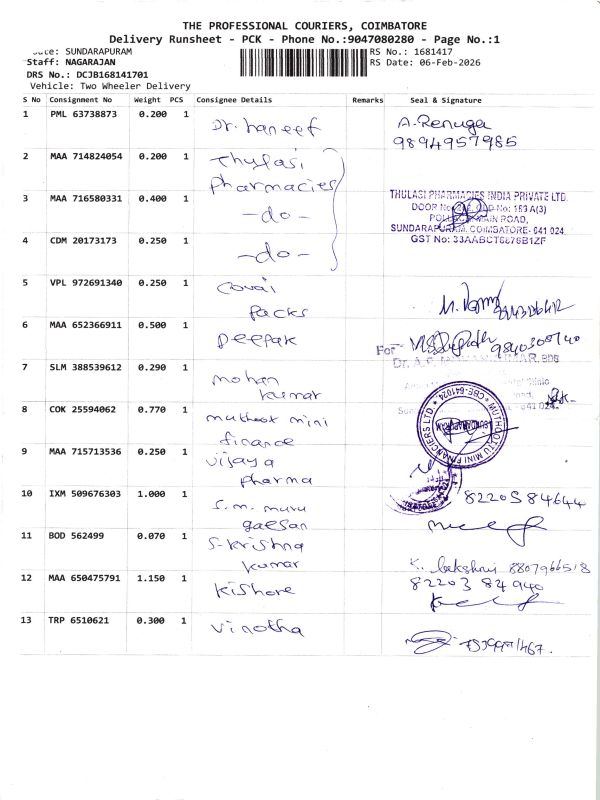 THE PROFESSIONAL COURIERS, COIMBATORE
Delivery Runsheet - PCK - Phone No.:9047080280 - Page No.:1
SUNDARAPURAM RS No.: 1681417
Staff: NAGARAJAN RS Date: 06-Feb-2026
DRS No.: DCJB168141701
Vehicle: Two Wheeler Delivery
S No Consignment No Weight PCS Consignee Details Remarks Seal & Signature
1 PML 63738873 0.200 1 Dr. haneef A. Renuga
9894957985
2 MAA 714824054 0.200 1 Thulasi
pharmacies
3 MAA 716580331 0.400 1 -do- THULASI PHARMACIES INDIA PRIVATE LTD.
DOOR No: 183 A(3)
MAIN ROAD,
SUNDARAPURAM, COIMBATORE- 641 024.
4 CDM 20173173 0.250 1 -do- GST No: 33AABCT6876B1ZF
5 VPL 972691340 0.250 1 Covai
Packs
6 MAA 652366911 0.500 1 Deepak 9840300740
For
7 SLM 388539612 0.290 1 mohan
kumar
8 COK 25594062 0.770 1 muthoot mini
finance
MUTHOOTTU MINI FINANCIERS LTD. CBE-641024
9 MAA 715713536 0.250 1 vijaya
pharma
10 IXM 509676303 1.000 1 S.m. muru
gaesan 8220584644
11 BOD 562499 0.070 1 S-Krishna
kumar K. 8807966518
12 MAA 650475791 1.150 1 Kishore 82203 84940
13 TRP 6510621 0.300 1 Vinotha